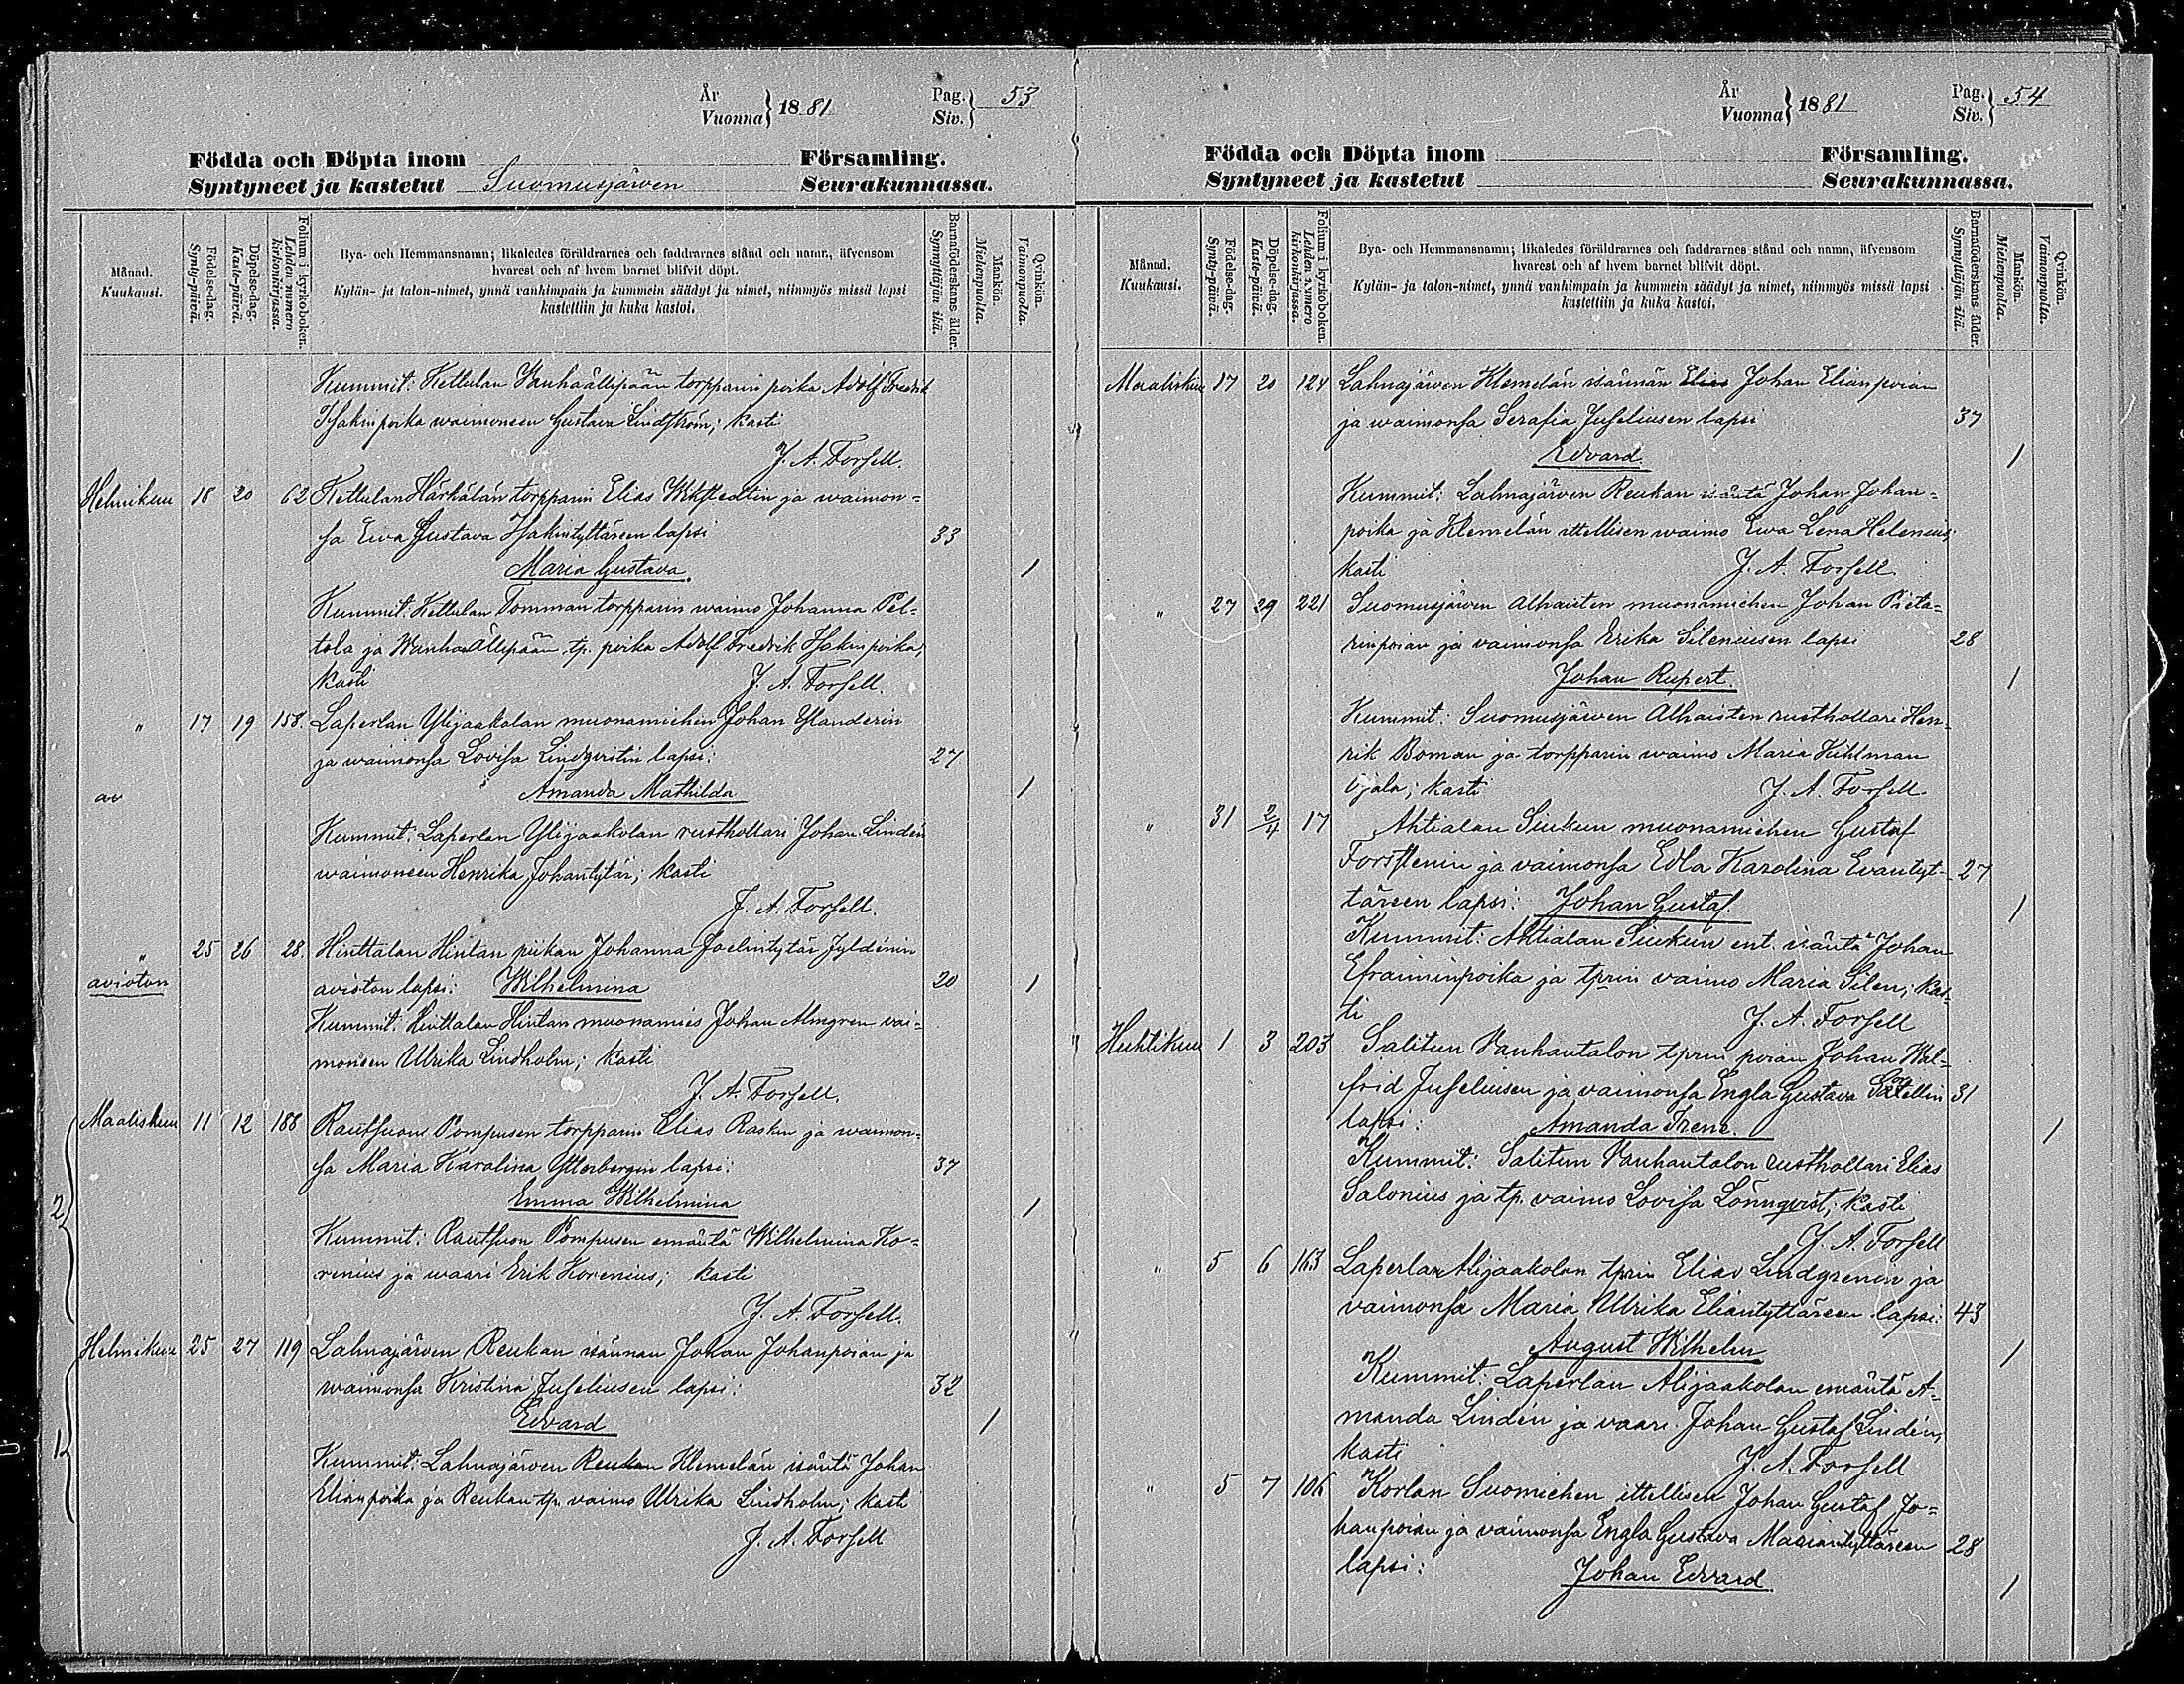 År
Vuonna } 1881
Pag.
Siv. } 53
Födda och Döpta inom Församling.
Syntyneet ja kastetut Suomusjärwen Seurakunnassa.
Månad.
Kuukausi.
Födelse-dag.
Synty-päivä.
Döpelse-dag.
Kaste-päivä.
Folium i kyrkoboken.
Lehden numero kirkonkirjassa.
Bya- och Hemmansnamn; likaledes föräldrarnes och faddrarnes stånd och namn, äfvensom
hvarest och af hvem barnet blifvit döpt.
Kylän- ja talon-nimet, ynnä vanhimpain ja kummein säädyt ja nimet, niinmyös missä lapsi
kastettiin ja kuka kastoi.
Barnaföderskans ålder.
Synnyttäjän ikä.
Mankön.
Miehenpuolia.
Qvinkön.
Vaimonpuolia.
Kummit: Kettulan Wanhaällipään torpparin poika Adolf Fredrik
Isakinpoika waimoneen Gustava Lindström; kasti
J. A. Forsell.
Helmikuu 18 20 62 Kettulan Härkälän torpparin Elias Wikstedtin ja waimon=
sa Ewa Gustava Isakintyttäreen lapsi 33
Maria Gustava. 1
Kummit: Kettulan Tomman torpparin waimo Johanna Pel=
tola ja Wanha Ällipään tp. poika Adolf Fredrik Isakinpoika;
kasti J. A. Forsell.
" 17 19 158. Laperlan Ylijaakolan muonamiehen Johan Ylanderin
ja waimonsa Lovisa Lindqvistin lapsi: 27
av Amanda Mathilda 1
Kummit: Laperlan Ylijaakolan rusthollari Johan Lindén
waimoneen Henrika Johantytär; kasti
J. A. Forsell.
" 25 26 28. Hinttalan Hintan piikan Johanna Joelintytär Jyldénin
avioton avioton lapsi: Wilhelmina 20 1
Kummit: Hinttalan Hintan muonamies Johan Almgren vai=
moneen Ulrika Lindholm; kasti
J. A. Forsell.
Maaliskuu 11 12 188 Rautsuon Pompusen torpparin Elias Raskin ja waimon=
sa Maria Karolina Ytterbergin lapsi: 37
2 Emma Wilhelmina 1
Kummit: Rautsuon Pompusen emäntä Wilhelmina Ko=
renius ja waari Erik Korenius; kasti
J. A. Forsell.
Helmikuu 25 27 119 Lahnajärwen Reukan isännän Johan Johanpoian ja
waimonsa Kristina Juseliusen lapsi: 32
Edvard 1
1 Kummit: Lahnajärwen Reukan Klemelän isäntä Johan
Elianpoika ja Reukan tp. vaimo Ulrika Lindholm; kasti
J. A. Forsell
År
Vuonna } 1881
Pag.
Siv. } 54
Födda och Döpta inom Församling.
Syntyneet ja kastetut Seurakunnassa.
Månad.
Kuukausi.
Födelse-dag.
Synty-päivä.
Döpelse-dag.
Kaste-päivä.
Folium i kyrkoboken.
Lehden numero kirkonkirjassa.
Bya- och Hemmansnamn; likaledes föräldrarnes och faddrarnes stånd och namn, äfvensom
hvarest och af hvem barnet blifvit döpt.
Kylän- ja talon-nimet, ynnä vanhimpain ja kummein säädyt ja nimet, niinmyös missä lapsi
kastettiin ja kuka kastoi.
Barnaföderskans ålder.
Synnyttäjän ikä.
Mankön.
Miehenpuolia.
Qvinkön.
Vaimonpuolia.
Maaliskuu 17 20 124 Lahnajärwen Klemelän isännän Elias Johan Elianpoian
ja waimonsa Serafia Juseliusen lapsi 37
Edvard. 1
Kummit: Lahnajärwen Reukan isäntä Johan Johan=
poika ja Klemelän ittellisen waimo Ewa Lena Helenius;
kasti J. A. Forsell.
" 27 29 221 Suomusjärwen Alhaisten muonamiehen Johan Pieta=
rinpoian ja vaimonsa Erika Sileniusen lapsi 28
Johan Rupert. 1
Kummit: Suomusjärwen Alhaisten rusthollari Hen=
rik Boman ja torpparin waimo Maria Kihlman
Ojala; kasti J. A. Forsell.
" 31 2/4 17 Ahtialan Siukun muonamiehen Gustaf
Forstenin ja vaimonsa Edla Karolina Evantyt= 27
täreen lapsi: Johan Gustaf. 1
Kummit: Ahtialan Siukun ent. isäntä Johan
Efraiminpoika ja tprin vaimo Maria Silen; kas=
ti J. A. Forsell
Huhtikuu 1 3 203 Salitun Vanhantalon tprin poian Johan Wal=
frid Juseliusen ja vaimonsa Engla Gustava Satellin 31
lapsi: Amanda Irene. 1
Kummit: Salitun Vanhantalon rusthollari Elias
Salonius ja tp. vaimo Lovisa Lönnqvist; kasti
J. A. Forsell
" 5 6 163 Laperlan Alijaakolan tprin Elias Lindgrenin ja
vaimonsa Maria Ulrika Eliantyttäreen lapsi: 43
August Wilhelm 1
Kummit: Laperlan Alijaakolan emäntä A=
manda Lindén ja vaari Johan Gustaf Lindén;
kasti J. A. Forsell
" 5 7 106 Korlan Suomiehen ittellisen Johan Gustaf Jo=
hanpoian ja vaimonsa Engla Gustava Mariantyttäreen 28
lapsi: Johan Edvard 1